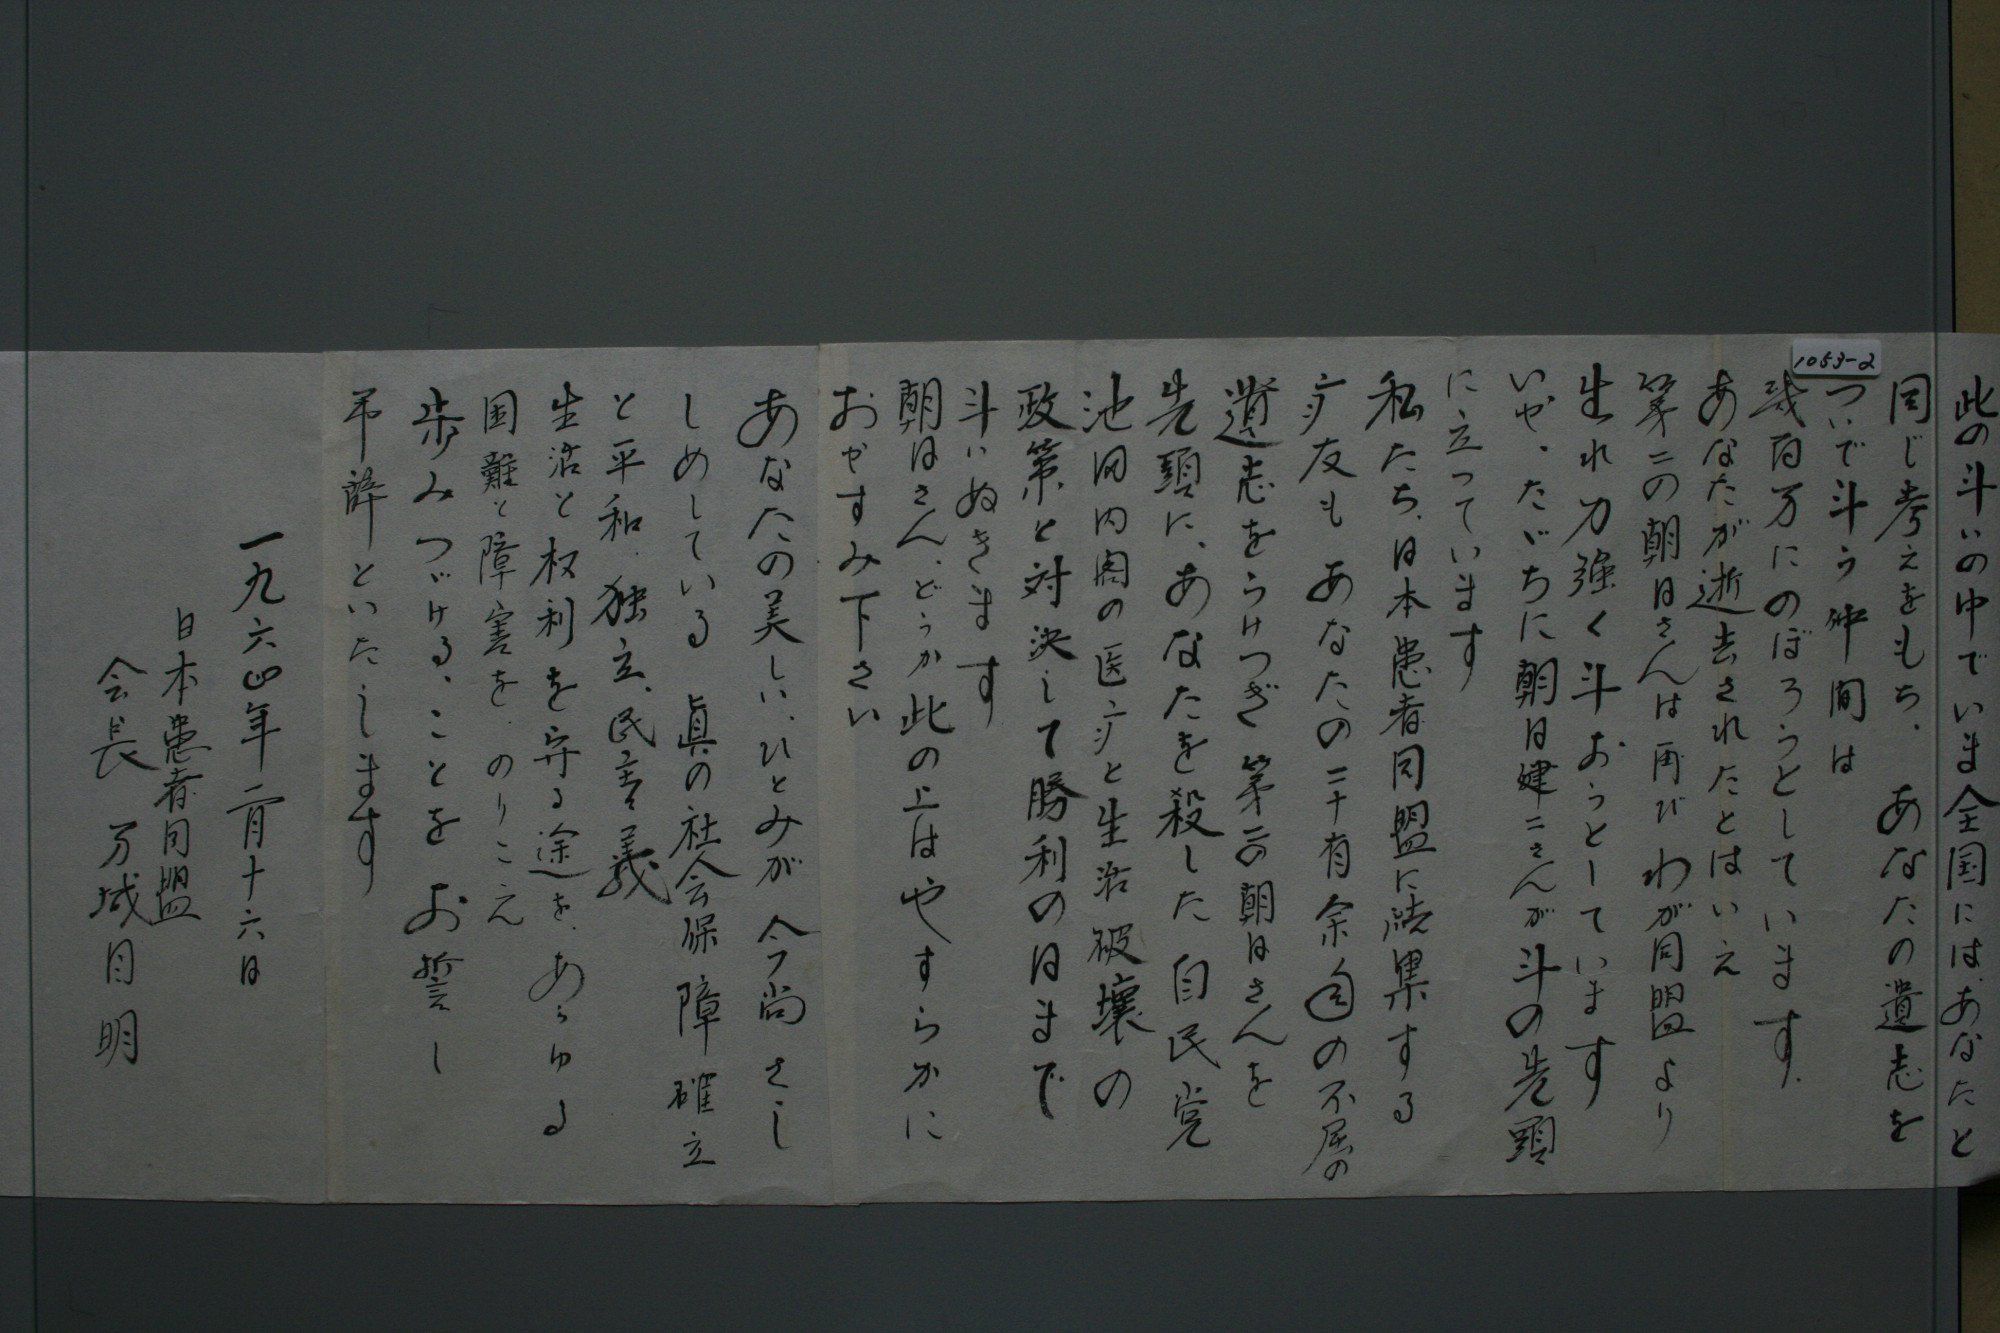 1053-2
此の斗いの中でいま全国には、あなたと
同じ考えをもち、あなたの遺志を
ついで斗う仲間は
幾百万にのぼろうとしています.
あなたが逝去されたとはいえ
第二の朝日さんは再びわが同盟より
生れ力強く斗おうとしています
いや、たゞちに朝日健二さんが斗の先頭
に立っています
私たち、日本患者同盟に結集する
疒友もあなたの二十有余年の不屈の
遺志をうけつぎ第二の朝日さんを
先頭に、あなたを殺した自民党
池田内閣の医疒と生活破壊の
政策と対決して勝利の日まで
斗いぬきます
朝日さん、どうか此の上はやすらかに
おやすみ下さい
あなたの美しい、ひとみが今尚さし
しめしている眞の社会保障確立
と平和、独立、民主々義
生活と权利を守る途を、あらゆる
困難と障害を、のりこえ
歩みつづける、ことをお誓し
弔辞といたします
一九六四年二月十六日
日本患者同盟
会長 万城目明